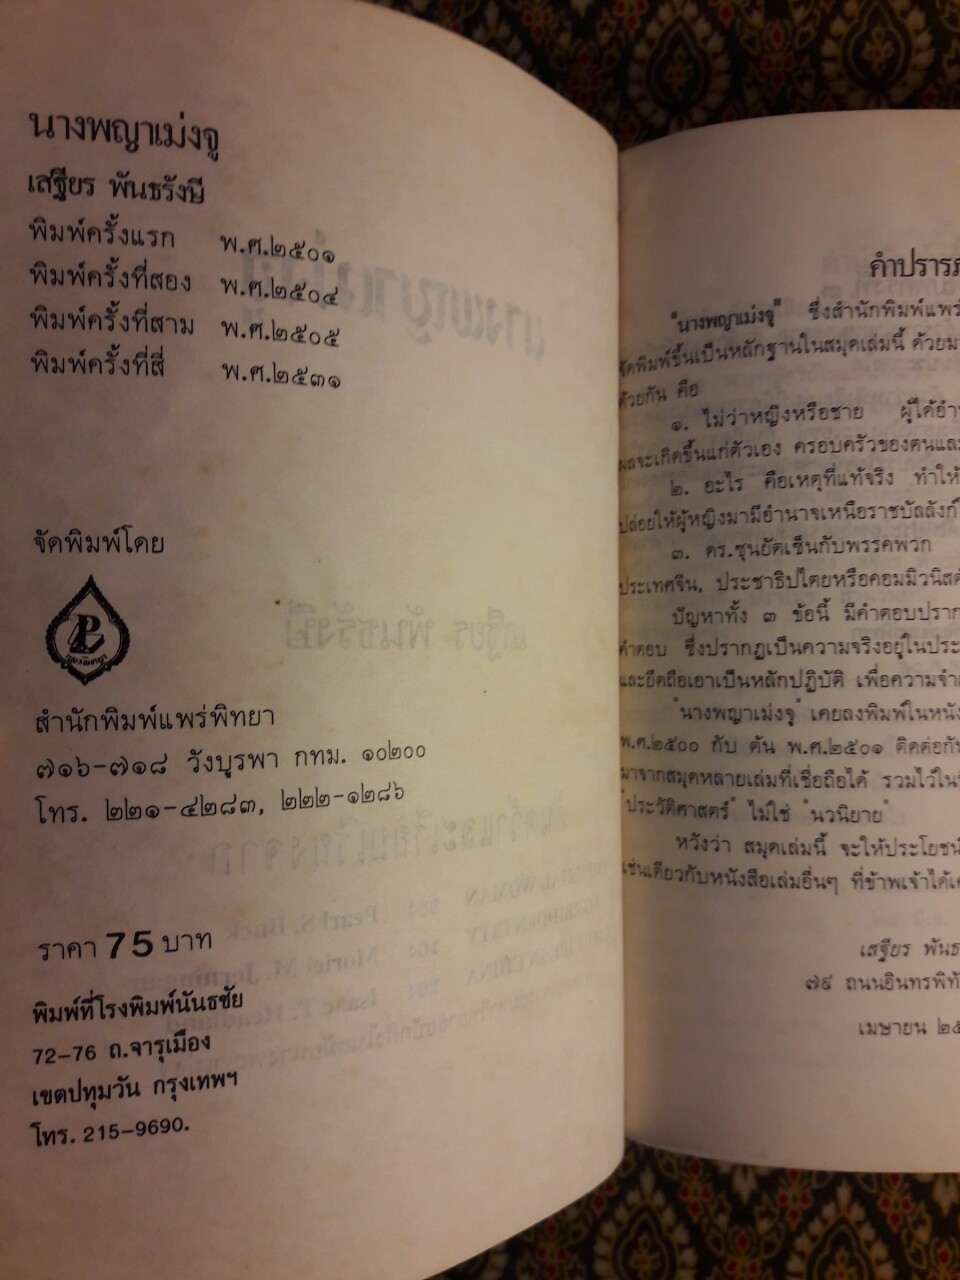 นางพญาเม่งจู
เสฐียร พันธรังษี
พิมพ์ครั้งแรก พ.ศ.๒๕๐๑
พิมพ์ครั้งที่สอง พ.ศ.๒๕๐๔
พิมพ์ครั้งที่สาม พ.ศ.๒๕๐๕
พิมพ์ครั้งที่สี่ พ.ศ.๒๕๓๑
จัดพิมพ์โดย
แพร่พิทยา
สำนักพิมพ์แพร่พิทยา
๗๑๖-๗๑๘ วังบูรพา กทม. ๑๐๒๐๐
โทร. ๒๒๑-๔๒๘๓, ๒๒๒-๑๒๘๖
ราคา 75 บาท
พิมพ์ที่โรงพิมพ์นันธชัย
72-76 ถ.จารุเมือง
เขตปทุมวัน กรุงเทพฯ
โทร. 215-9690.
คำปรารภ
"นางพญาเม่งจู" ซึ่งสำนักพิมพ์แพร่
จัดพิมพ์ขึ้นเป็นหลักฐานในสมุดเล่มนี้ ด้วยม
ด้วยกัน คือ
๑. ไม่ว่าหญิงหรือชาย ผู้ได้อำ
ผลจะเกิดขึ้นแก่ตัวเอง ครอบครัวของตนและ
๒. อะไร คือเหตุที่แท้จริง ทำให้
ปล่อยให้ผู้หญิงมามีอำนาจเหนือราชบัลลังก์
๓. ดร.ซุนยัตเซ็นกับพรรคพวก
ประเทศจีน, ประชาธิปไตยหรือคอมมิวนิสต์
ปัญหาทั้ง ๓ ข้อนี้ มีคำตอบปราก
คำตอบ ซึ่งปรากฏเป็นความจริงอยู่ในประ
และยึดถือเอาเป็นหลักปฏิบัติ เพื่อความจำ
"นางพญาเม่งจู" เคยลงพิมพ์ในหนัง
พ.ศ.๒๕๐๐ กับ ต้น พ.ศ.๒๕๐๑ ติดต่อกัน
มาจากสมุดหลายเล่มที่เชื่อถือได้ รวมไว้ใน
"ประวัติศาสตร์" ไม่ใช่ "นวนิยาย"
หวังว่า สมุดเล่มนี้ จะให้ประโยชน์
เช่นเดียวกับหนังสือเล่มอื่นๆ ที่ข้าพเจ้าได้เค
เสฐียร พันธ
๗๙ ถนนอินทรพิทั
เมษายน ๒๕